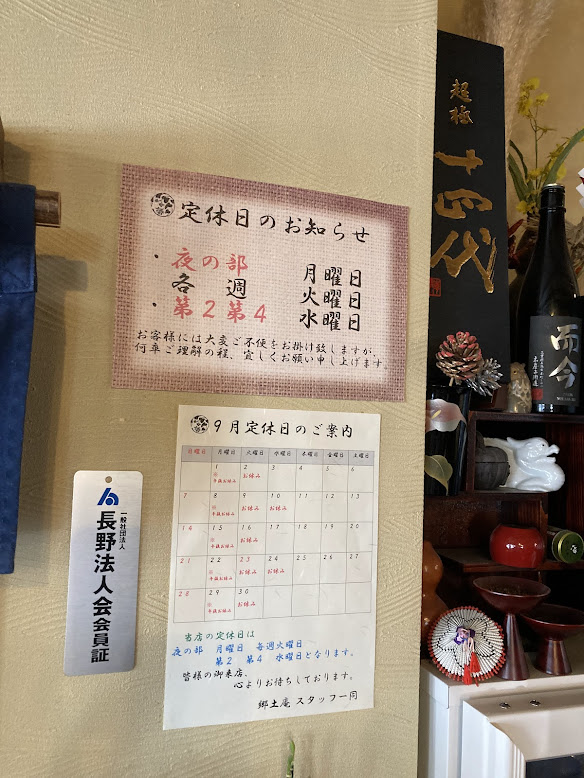 定休日のお知らせ
・夜の部 月曜日
各週 火曜日
・第2第4 水曜日
お客様には大変ご不便をお掛け致しますが、
何卒ご理解の程、宜しくお願い申し上げます
9月定休日のご案内
日曜日 月曜日 火曜日 水曜日 木曜日 金曜日 土曜日
1 2 3 4 5 6
午後お休み お休み
7 8 9 10 11 12 13
午後お休み お休み お休み
14 15 16 17 18 19 20
午後お休み お休み
21 22 23 24 25 26 27
午後お休み お休み お休み
28 29 30
午後お休み お休み
当店の定休日は
夜の部 月曜日 毎週火曜日
第2 第4 水曜日となります。
皆様の御来店、
心よりお待ちしております。
郷土庵 スタッフ一同
一般社団法人
長野法人会会員証
超極
十四代
而今